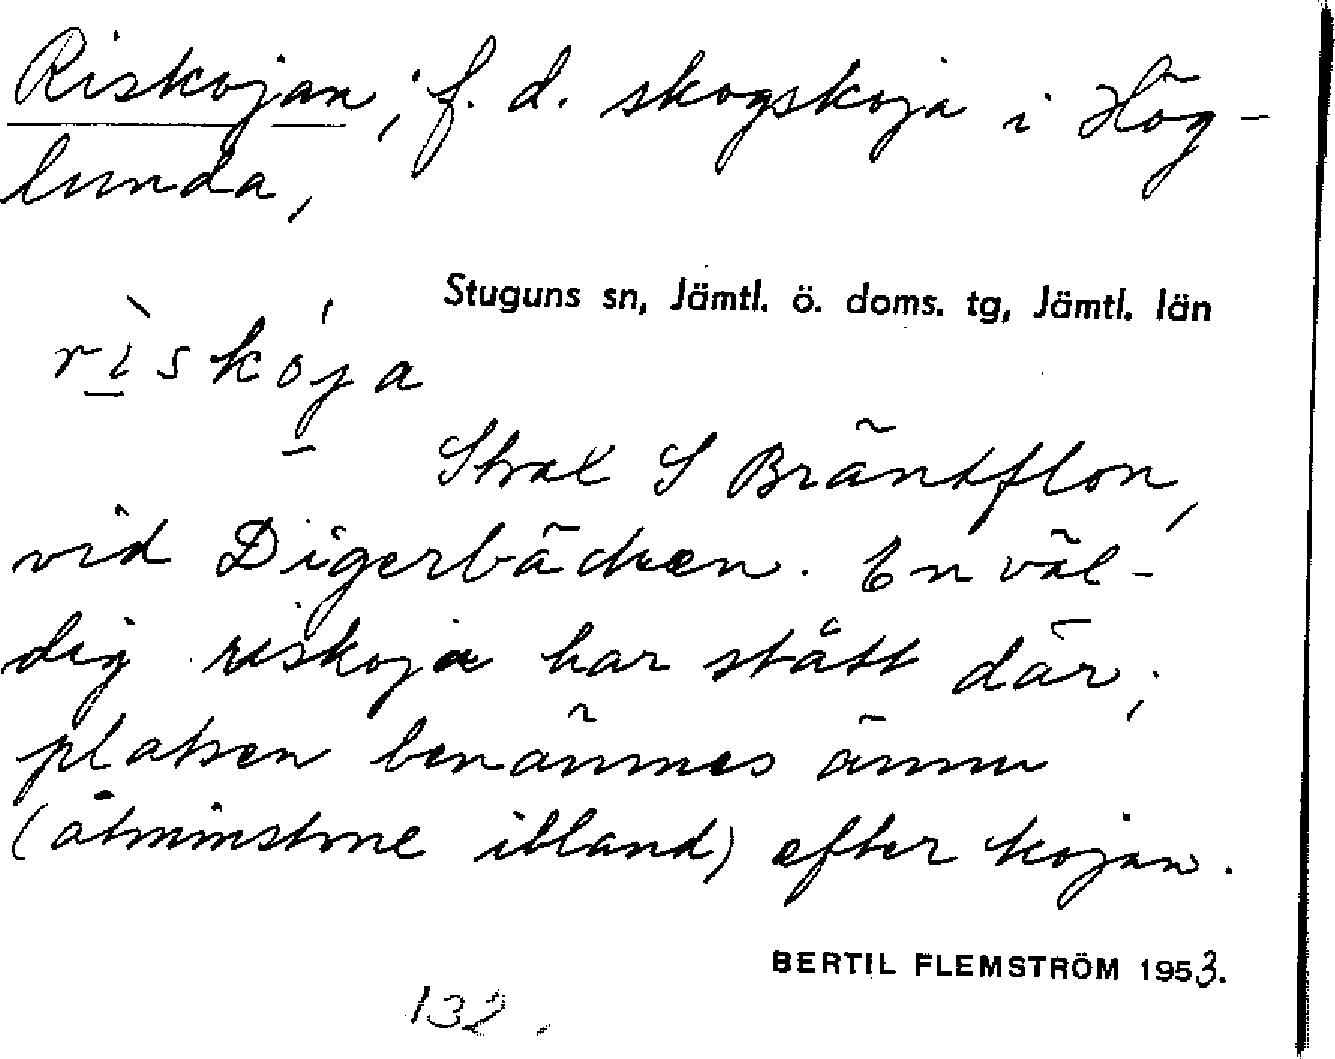 Riskojan, f. d. skogskoja i Hög-
lunda,
Stuguns sn, Jämtl. ö. doms. tg, Jämtl. län
rìskója
Strax S Bräntflon,
vid Digerbäcken. En väl-
dig riskoja har stått där;
platsen benämnes ännu
(åtminstone ibland) efter kojan.
BERTIL FLEMSTRÖM 1953.
132.